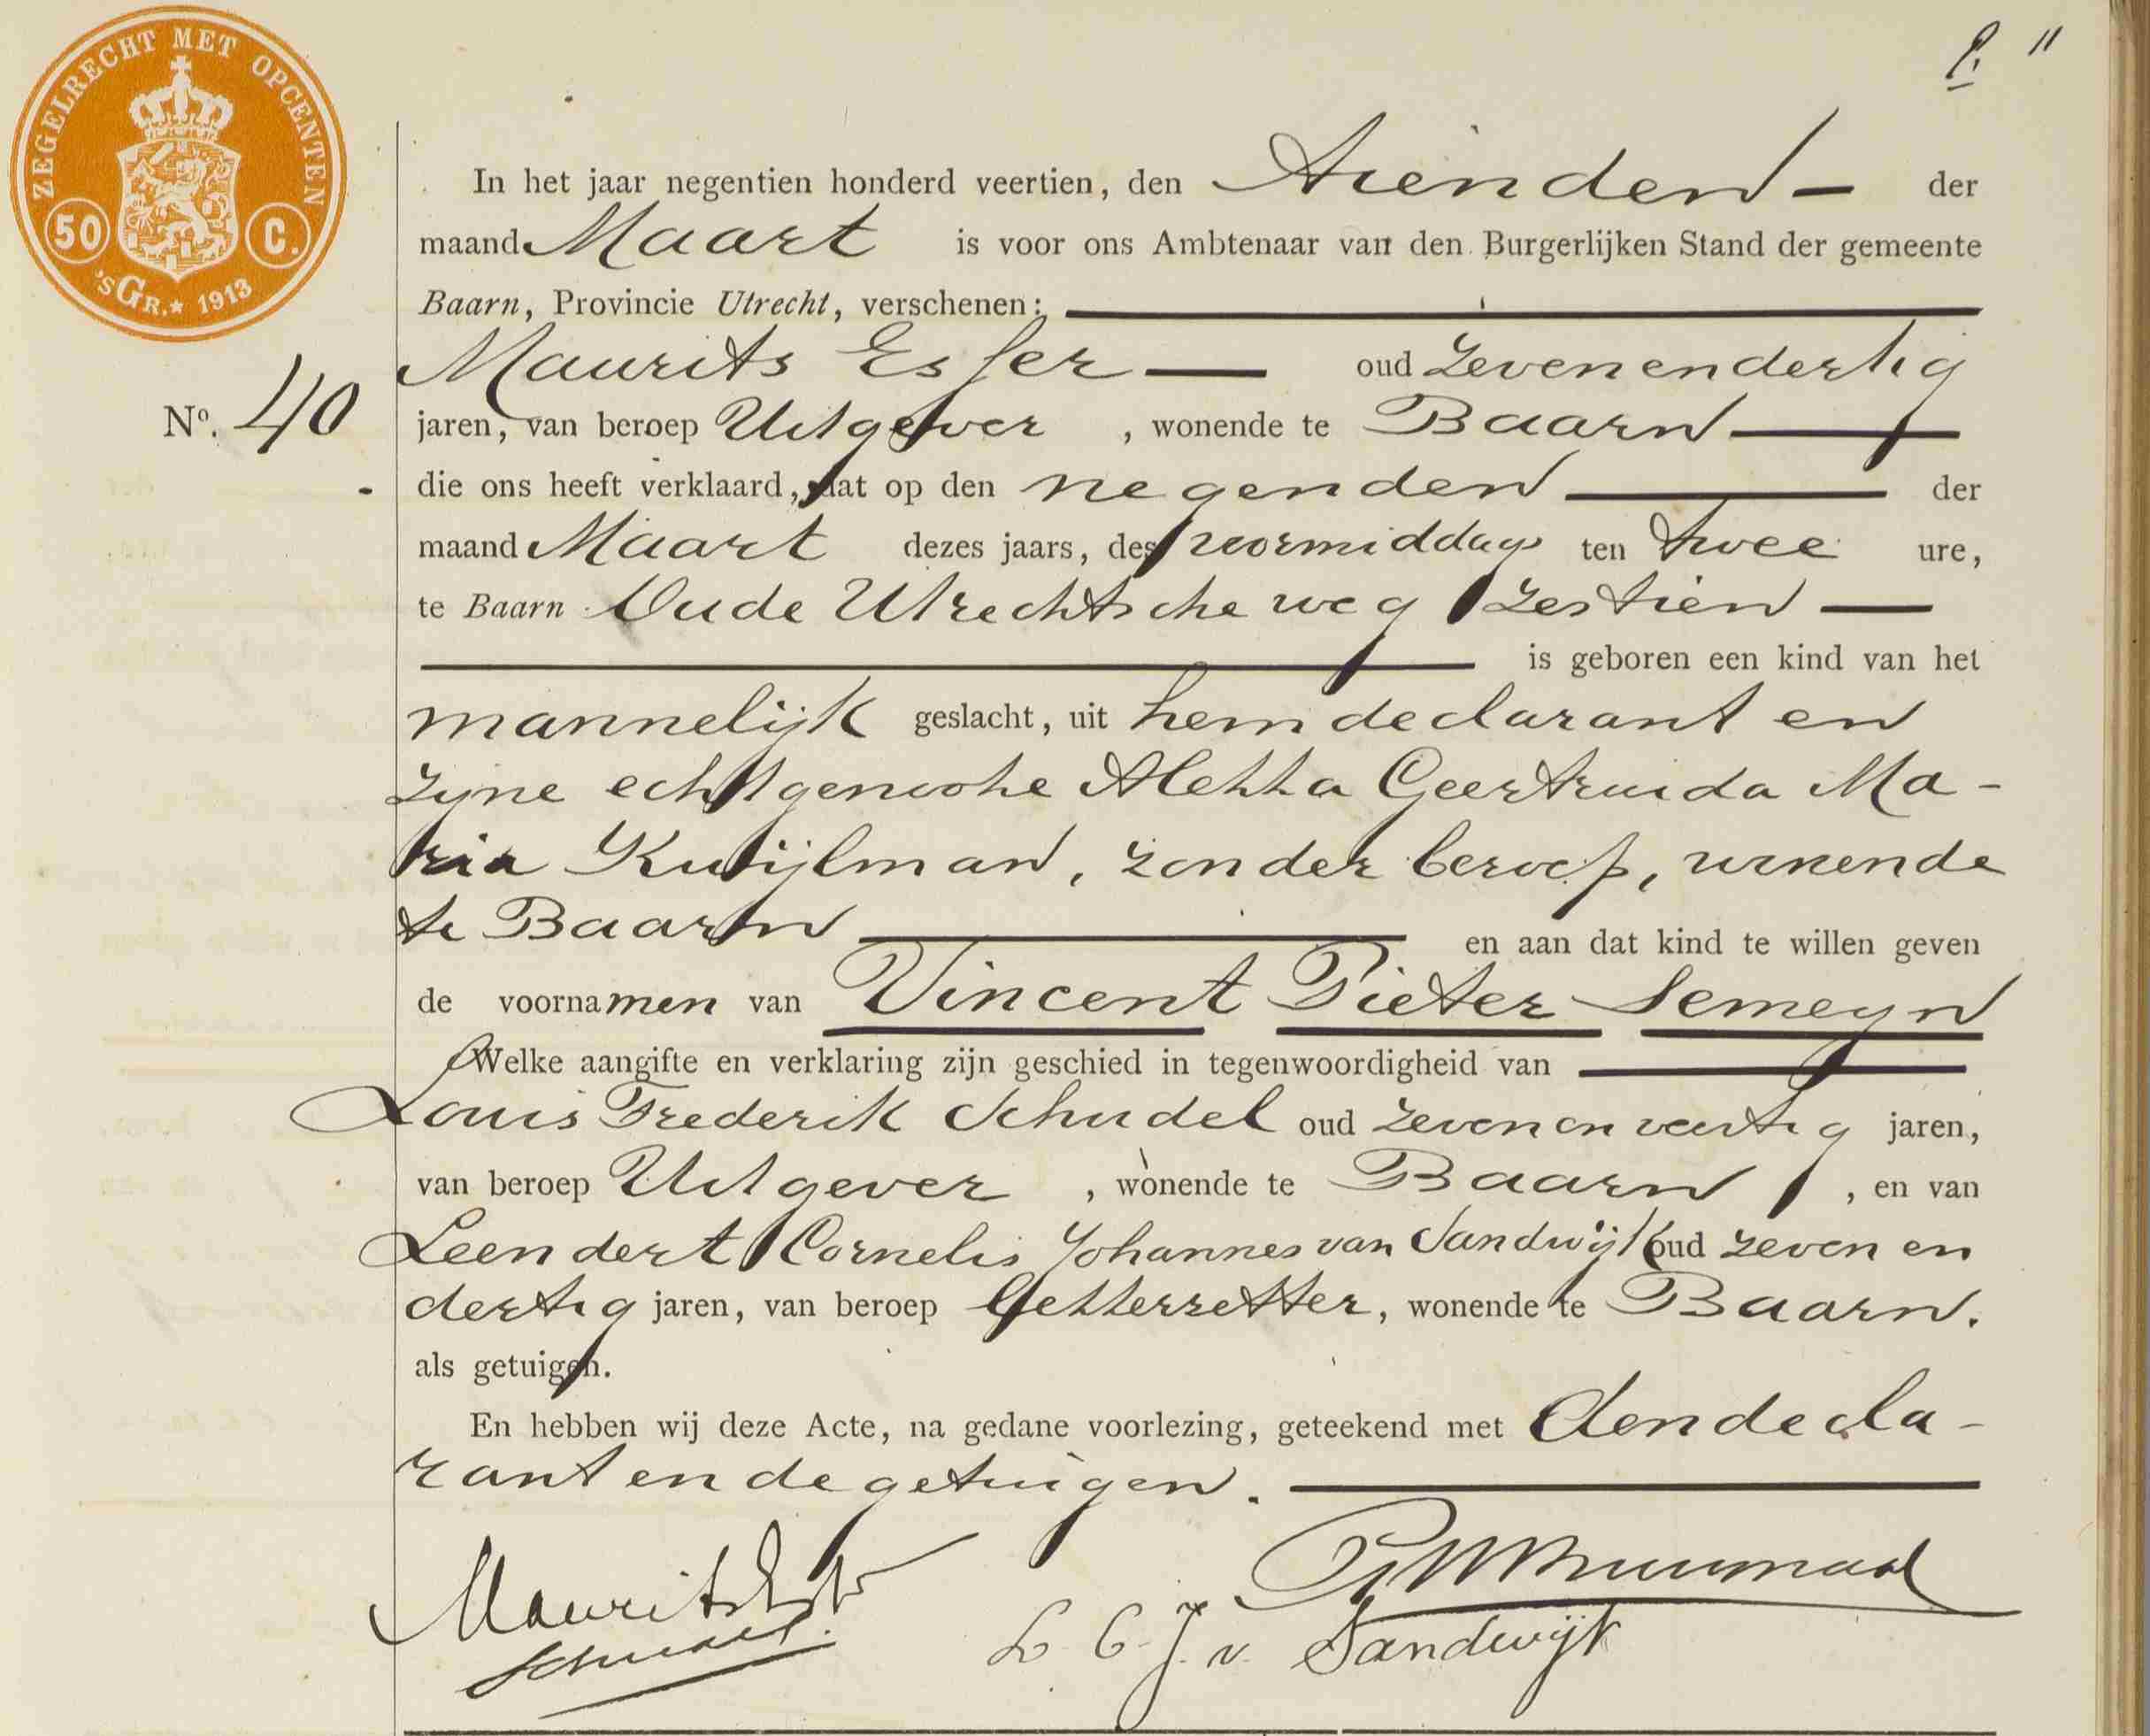 ZEGELRECHT MET OPCENTEN
50 C.
'SGR.★ 1913
In het jaar negentien honderd veertien, den tienden der
maand Maart is voor ons Ambtenaar van den Burgerlijken Stand der gemeente
Baarn, Provincie Utrecht, verschenen:
Maurits Esser oud zevenendertig
No. 40
jaren, van beroep Uitgever, wonende te Baarn
die ons heeft verklaard, dat op den negenden der
maand Maart dezes jaars, des voormiddags ten twee ure,
te Baarn Oude Utrechtsche weg zestien
is geboren een kind van het
mannelijk geslacht, uit hem declarant en
zyne echtgenoote Aletta Geertruida Ma-
ria Kuijlman, zonder beroep, wonende
te Baarn en aan dat kind te willen geven
de voornamen van Vincent Pieter Semeyn
Welke aangifte en verklaring zijn geschied in tegenwoordigheid van
Louis Frederik Schudel oud zeven en veertig jaren,
van beroep Uitgever, wonende te Baarn, en van
Leendert Cornelis Johannes van Sandwijk oud zeven en
dertig jaren, van beroep letterzetter, wonende te Baarn.
als getuigen.
En hebben wij deze Acte, na gedane voorlezing, geteekend met den decla-
rant en de getuigen.
Maurits Esser
Schudel.
L C J. v. Sandwijk